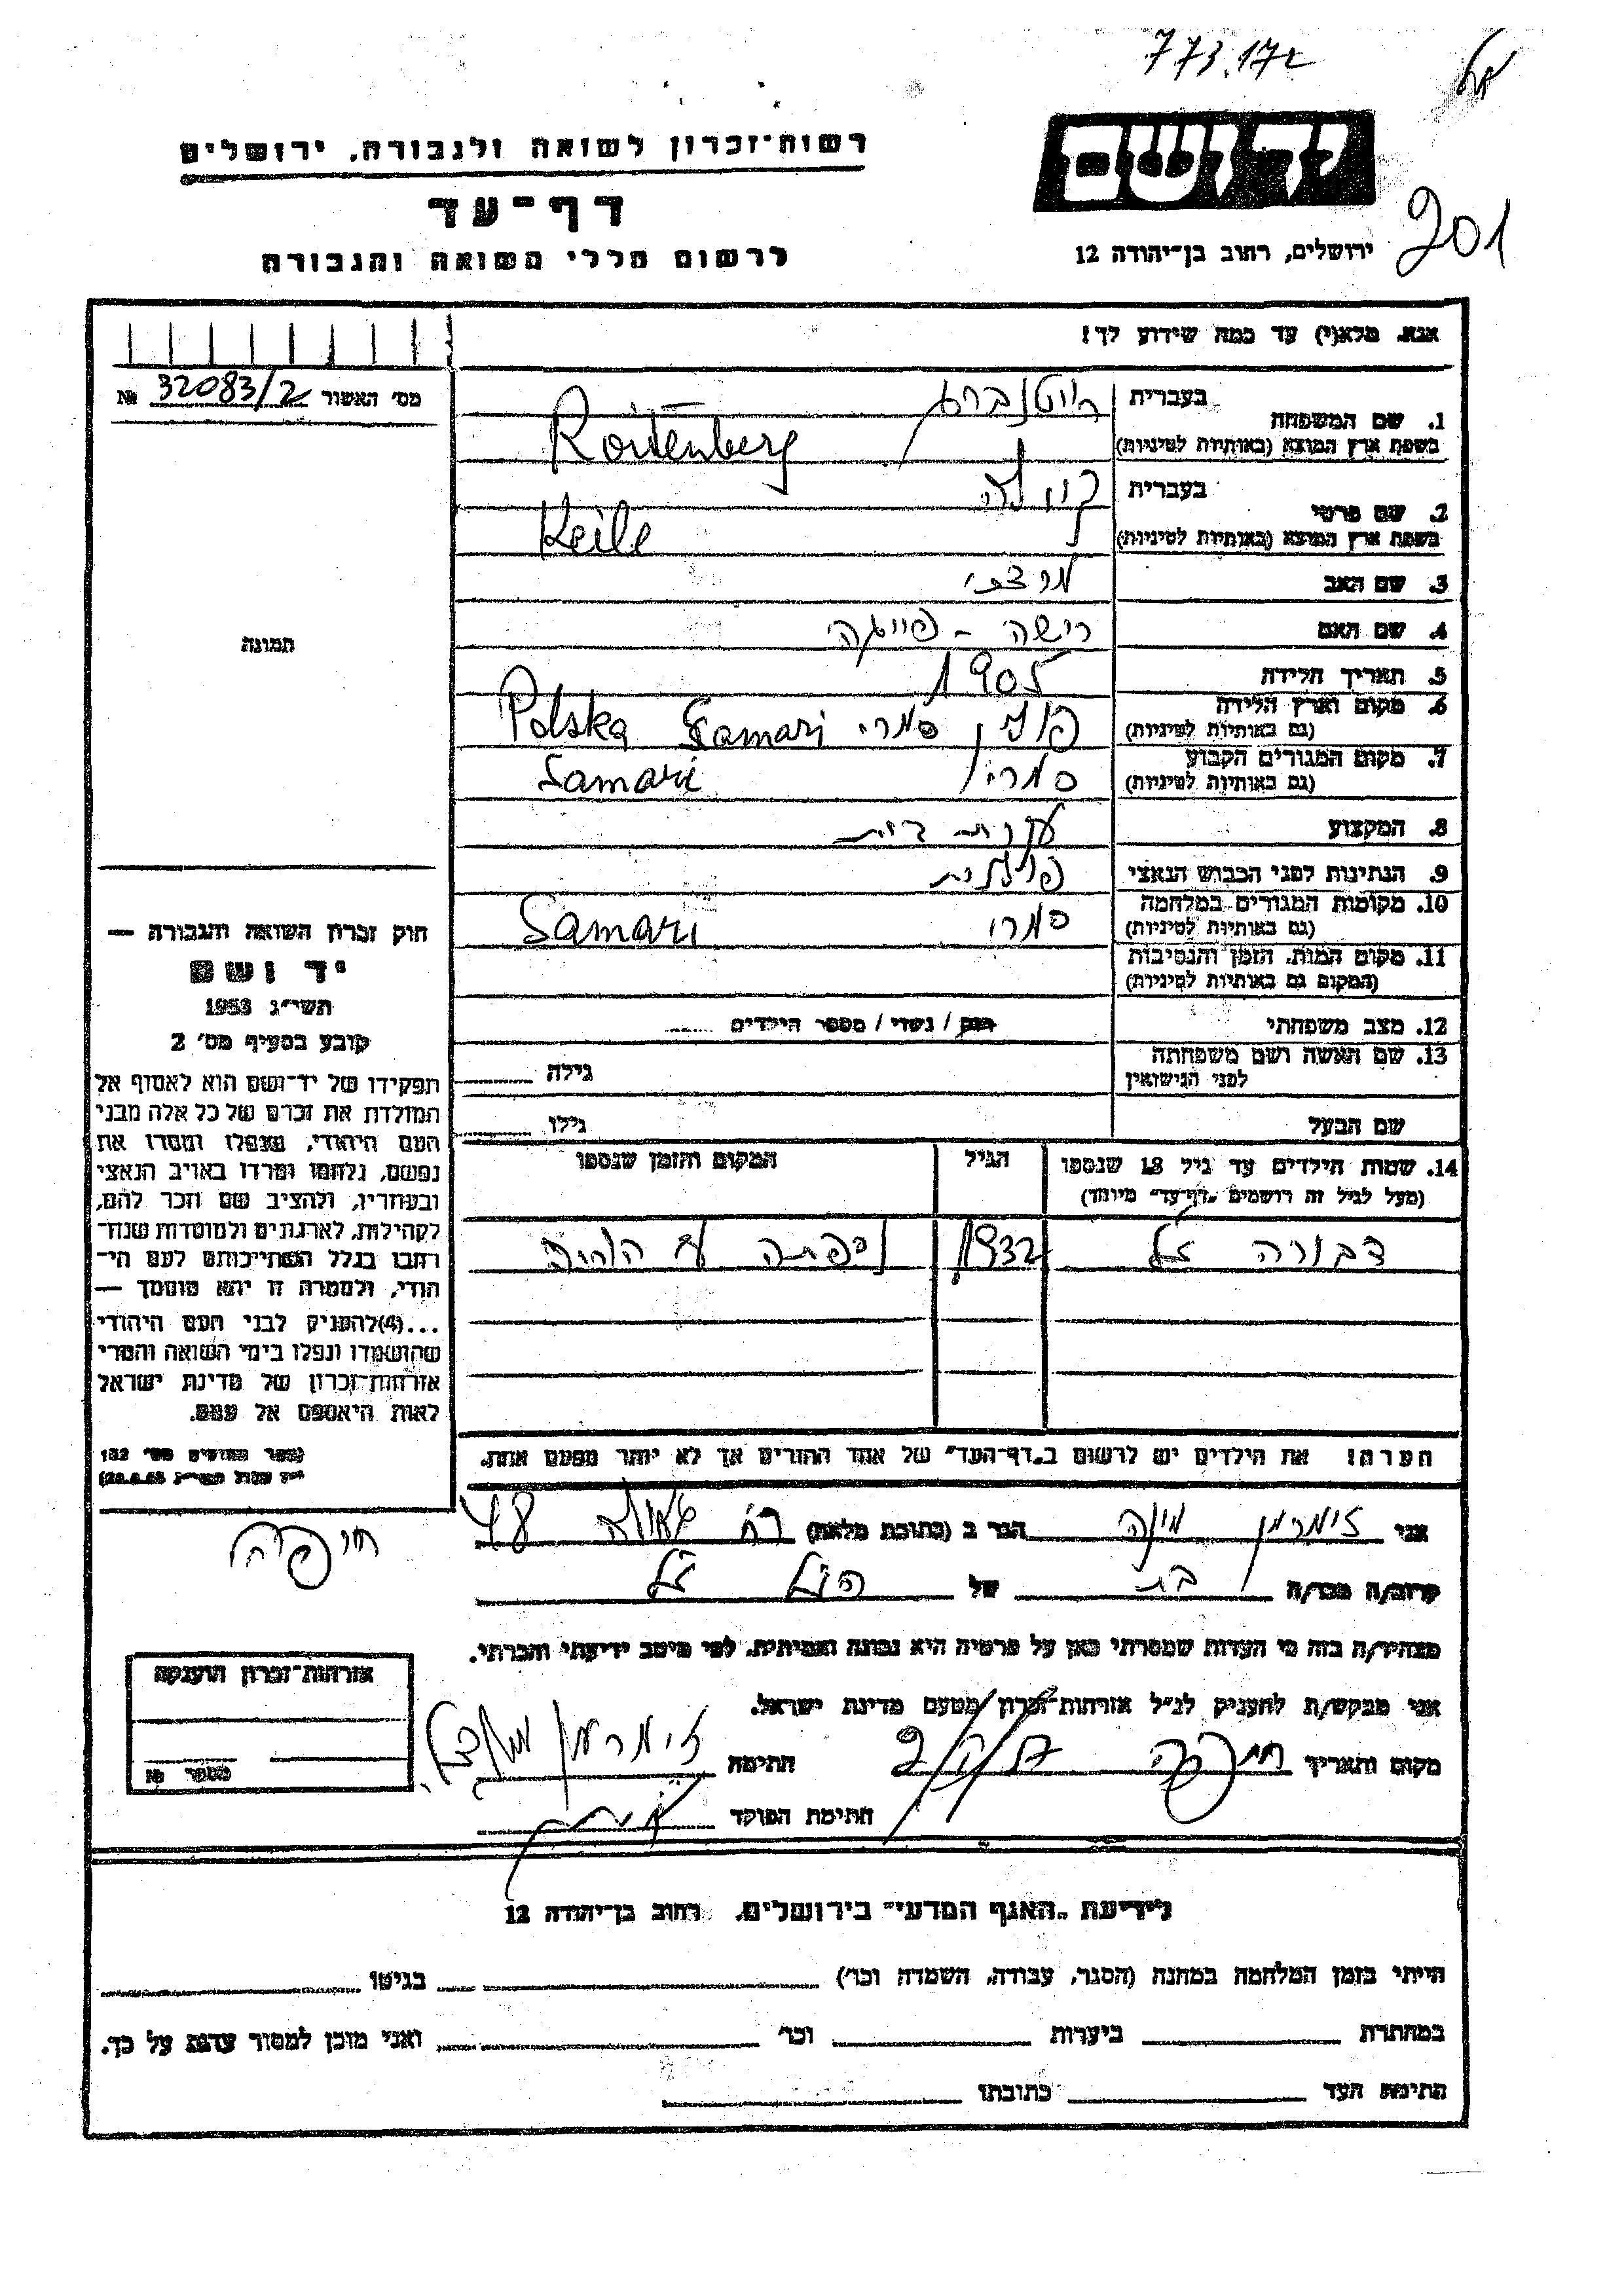 773.172
רשות־זכרון לשואה ולגבורה, ירושלים
דף־עד
לרשום חללי השואה והגבורה
יד ושם
ירושלים, רחוב בן־יהודה 12
201
אנא, מלא(י) עד כמה שידוע לך!
מס׳ האשור 32083/2 №
1. שם המשפחה בעברית רויטנברג
בשפת ארץ המוצא (באותיות לטיניות) Roitenberg
2. שם פרטי בעברית קיילה
בשפת ארץ המוצא (באותיות לטיניות) Keile
3. שם האב מרדכי
4. שם האם רישה - פייגה
5. תאריך הלידה 1905
6. מקום וארץ הלידה (גם באותיות לטיניות) פולין סמרי Samari Polska
7. מקום המגורים הקבוע (גם באותיות לטיניות) סמרי Samari
8. המקצוע עקרת בית
9. הנתינות לפני הכבוש הנאצי פולנית
10. מקומות המגורים במלחמה (גם באותיות לטיניות) סמרי Samari
11. מקום המות, הזמן והנסיבות (המקום גם באותיות לטיניות)
12. מצב משפחתי רווק / נשוי / מספר הילדים
13. שם האשה ושם משפחתה לפני הנישואין גילה
שם הבעל גילו
14. שמות הילדים עד גיל 18 שנספו (מעל לגיל זה רושמים „דף־עד״ מיוחד) הגיל המקום והזמן שנספו
דבורה ז״ל 1932 נספתה עם
הערה! את הילדים יש לרשום ב„דף־העד״ של אחד ההורים אך לא יותר מפעם אחת.
תמונה
חוק זכרון השואה והגבורה —
יד ושם
תשי״ג 1953
קובע בסעיף מס׳ 2
תפקידו של יד־ושם הוא לאסוף אל
המולדת את זכרם של כל אלה מבני
העם היהודי, שנפלו ומסרו את
נפשם, נלחמו ומרדו באויב הנאצי
ובעוזריו, ולהציב שם וזכר להם,
לקהילות, לארגונים ולמוסדות שנח־
רבו בגלל השתייכותם לעם הי־
הודי, ולמטרה זו יהא מוסמך —
...(4) להעניק לבני העם היהודי
שהושמדו ונפלו בימי השואה והמרי
אזרחות־זכרון של מדינת ישראל
לאות היאספם אל עמם.
(ספר החוקים מס׳ 132
אני זימרמן הגר ב (כתובת מלאה) רח׳ 48
חיפה
קרוב/ה מכר/ה בת של הנ״ל ז״ל
מצהיר/ה בזה כי העדות שמסרתי כאן על פרטיה היא נכונה ואמיתית, לפי מיטב ידיעתי והכרתי.
אני מבקש/ת להעניק לנ״ל אזרחות־זכרון מטעם מדינת ישראל.
מקום ותאריך חיפה חתימה זימרמן
חתימת הפוקד
אזרחות־זכרון הוענקה
מספר №
לידיעת „האגף המדעי״ בירושלים, רחוב בן־יהודה 12
הייתי בזמן המלחמה במחנה (הסגר, עבודה, השמדה וכו׳) בגיטו
במחתרת ביערות וכו׳ ואני מוכן למסור עדות על כך.
חתימת העד כתובתו